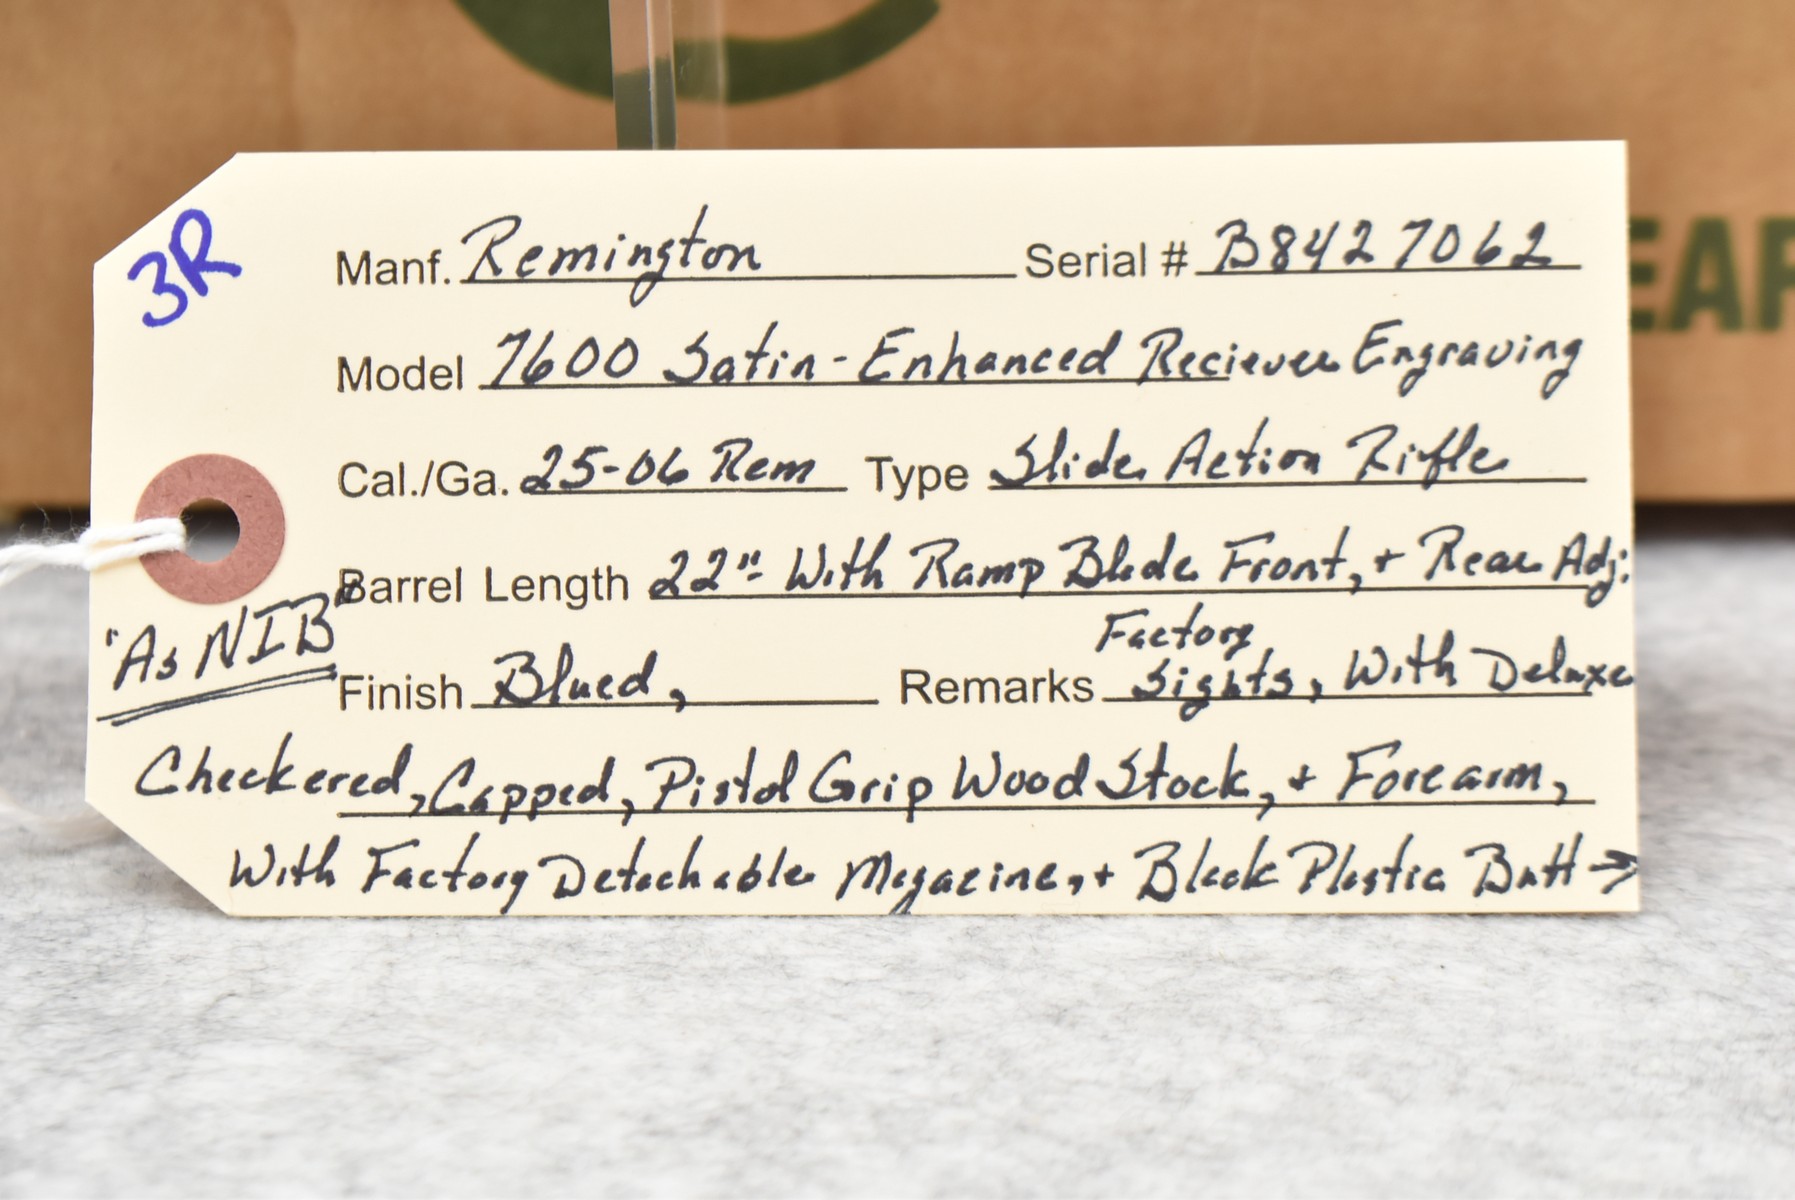 3R
Manf. Remington Serial # B8427062
Model 7600 Satin-Enhanced Reciever Engraving
Cal./Ga. 25-06 Rem Type Slide Action Rifle
Barrel Length 22"- With Ramp Blade Front, + Rear Adj.
"As NIB"
Factory
Finish Blued, Remarks Sights, With Deluxe
Checkered, Capped, Pistol Grip Wood Stock, + Forearm,
With Factory Detachable Magazine, + Black Plastic Butt →
EAR